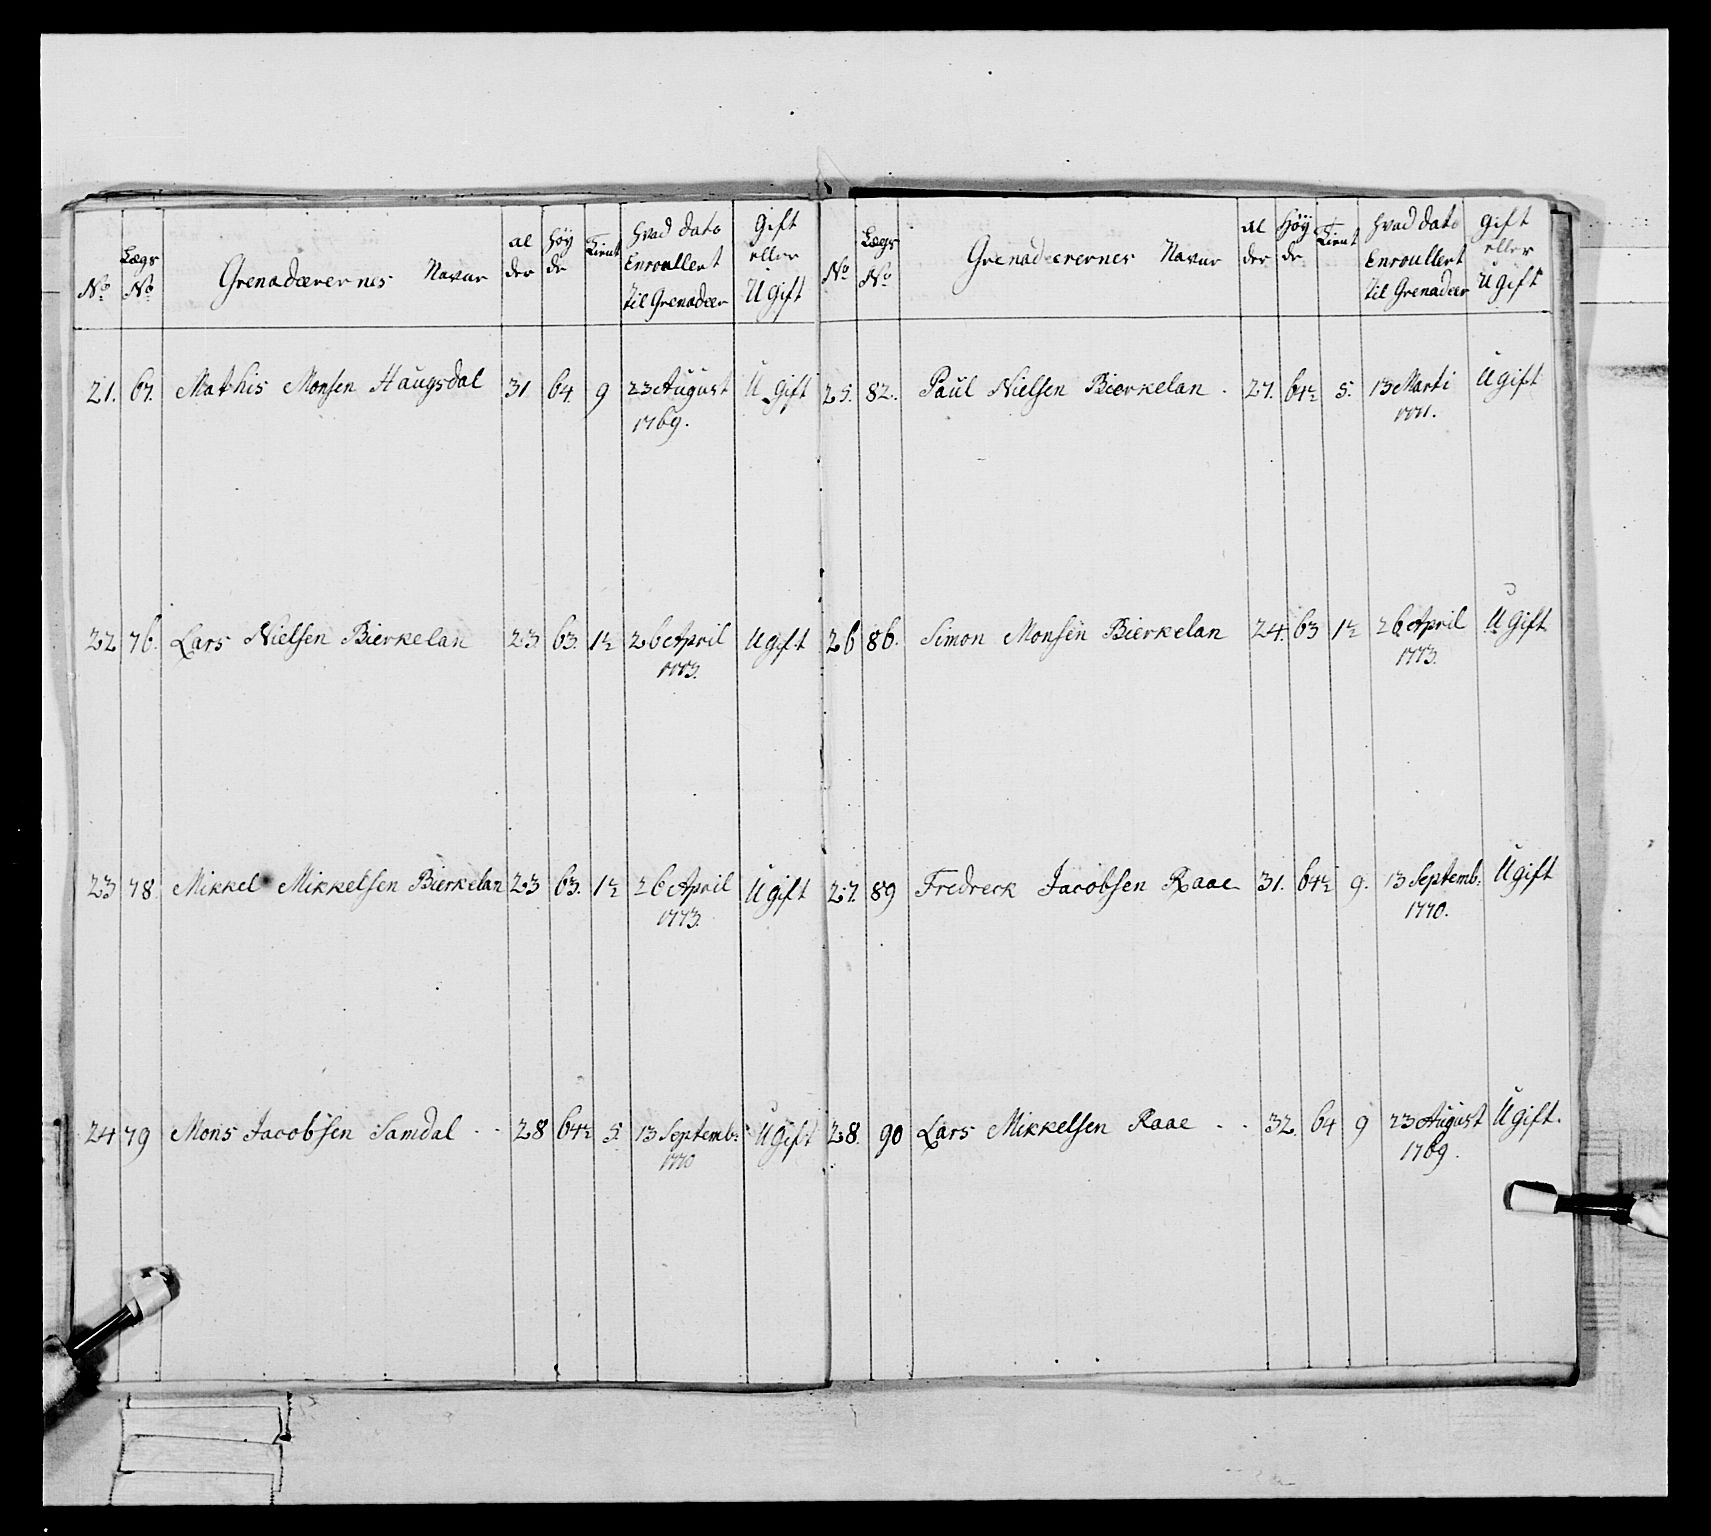 No Lægs No Grenadærernes Navne Alder Høyde Tient Hvad Dato Enroullert til Grenadeer Gift eller Ugift
21. 67. Mathis Monsen Haugsdal 31 64 9 23 August Ugift
1769.
22 76. Lars Nielsen Bierkelan 23 63. 1½ 26 April Ugift
1773.
23 78. Mikkel Mikkelsen Bierkelan 23 63. 1½ 26 April Ugift
1773.
24 79 Mons Jacobsen Samdal - - 28 64½ 5 13 Septemb: Ugift
1770
No Lægs No Grenadeerernes Navne Alder Høyde Tient Hvad Dato Enroullert til Grenadeer Gift eller Ugift
25. 82. Paul Nielsen Bierkelan - 27. 64½ 5. 13 Marti Ugift
1771.
26 86. Simon Monsen Bierkelan 24. 63 1½ 26 April Ugift
1773.
27. 89 Fredreck Jacobsen Raae 31. 64½ 9. 13 Septemb: Ugift
1770.
28. 90 Lars Mikkelsen Raae - - 32. 64 9 23 August Ugift.
1769.